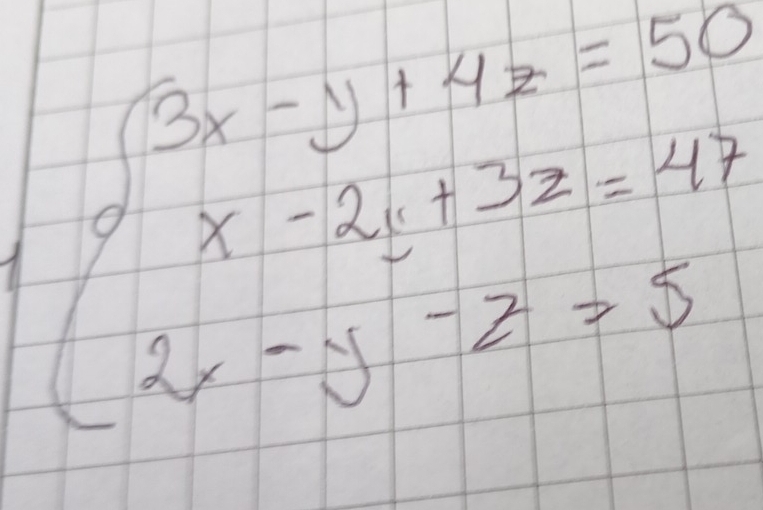 3x - y + 4z = 50
x - 2y + 3z = 47
2x - y - z = 5